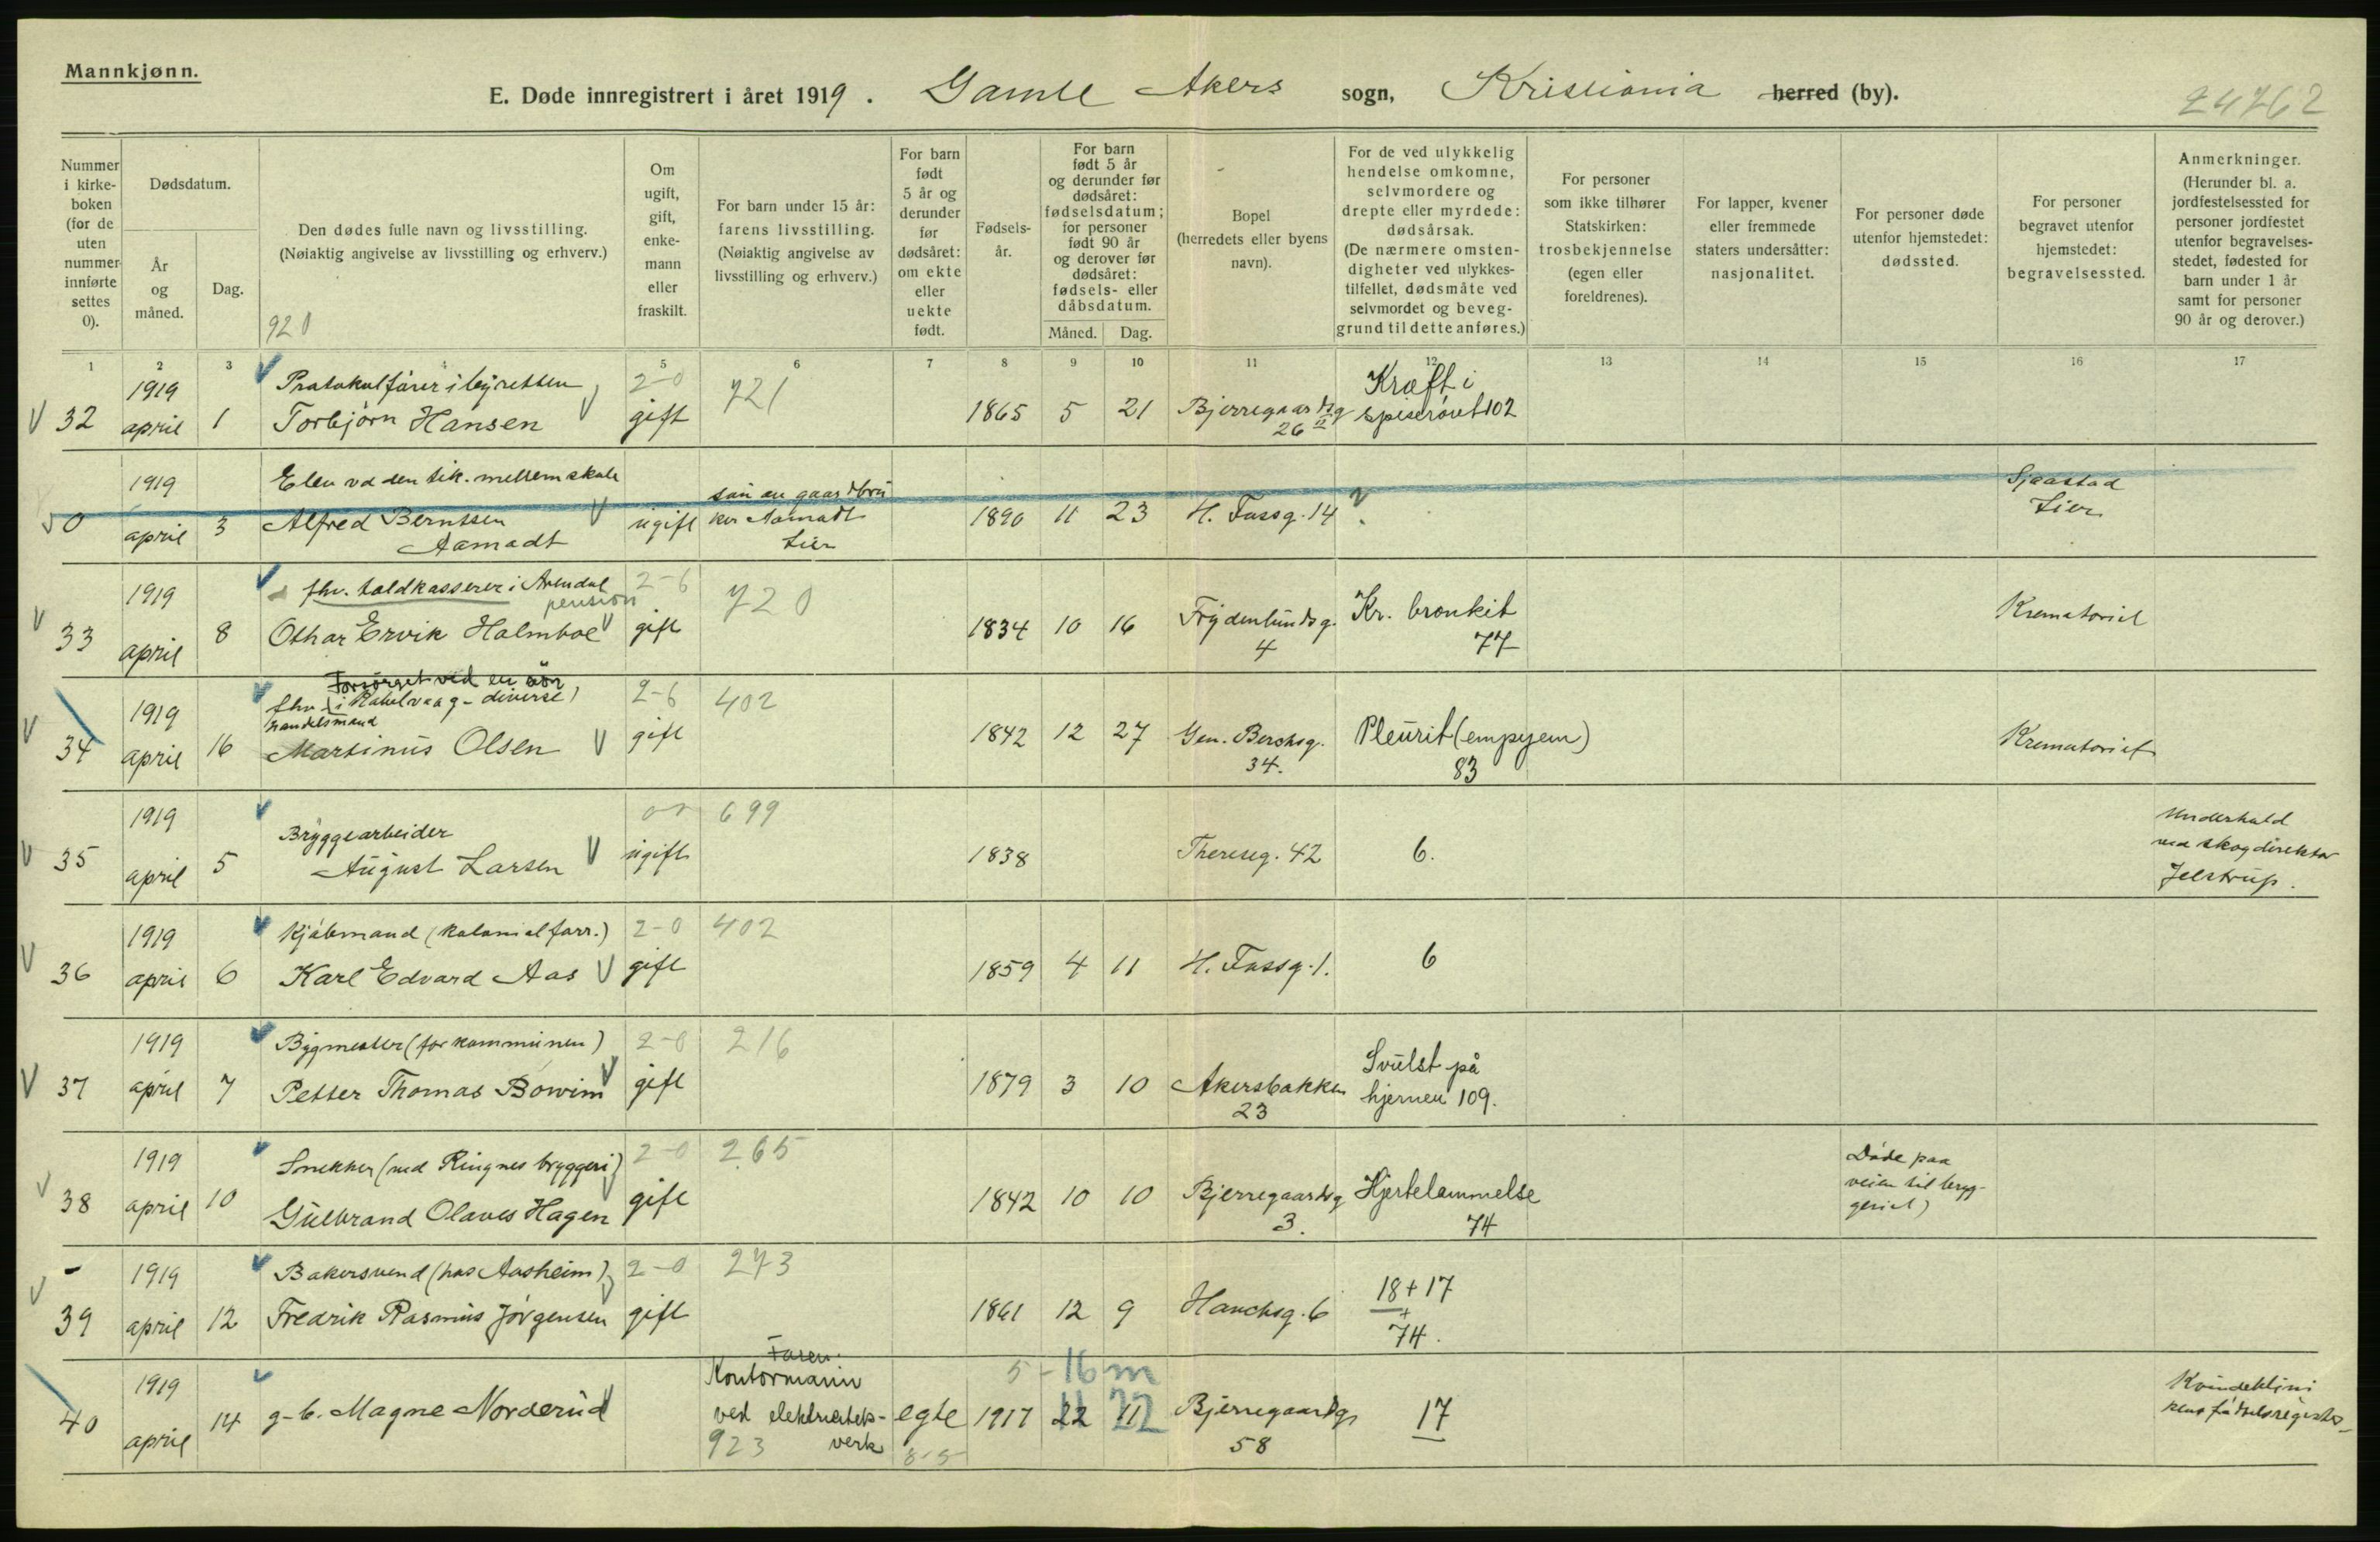 Mannkjønn.
E. Døde innregistrert i året 1919. Gamle Akers sogn, Kristiania herred (by).
24762
Nummer i kirke-boken (for de uten nummer innførte settes 0).
Dødsdatum.
År og måned.
Dag.
Den dødes fulle navn og livsstilling.
(Nøiaktig angivelse av livsstilling og erhverv.)
920
Om ugift, gift, enke-mann eller fraskilt.
For barn under 15 år: farens livsstilling. (Nøiaktig angivelse av livsstilling og erhverv.)
For barn født 5 år og derunder før dødsåret: om ekte eller uekte født.
Fødsels-år.
For barn født 5 år og derunder før dødsåret: fødselsdatum; for personer født 90 år og derover før dødsåret: fødsels- eller dåbsdatum.
Måned. Dag.
Bopel (herredets eller byens navn).
For de ved ulykkelig hendelse omkomne, selvmordere og drepte eller myrdede: dødsårsak. (De nærmere omsten-digheter ved ulykkes-tilfellet, dødsmåte ved selvmordet og beveg-grund til dette anføres.)
For personer som ikke tilhører Statskirken: trosbekjennelse (egen eller foreldrenes).
For lapper, kvener eller fremmede staters undersåtter: nasjonalitet.
For personer døde utenfor hjemstedet: dødssted.
For personer begravet utenfor hjemstedet: begravelsessted.
Anmerkninger. (Herunder bl. a. jordfestelsessted for personer jordfestet utenfor begravelses-stedet, fødested for barn under 1 år samt for personer 90 år og derover.)
1 2 3 4 5 6 7 8 9 10 11 12 13 14 15 16 17
1919 Protokolfører i byretten 2-0 721 Kræft i
32 april 1 Torbjørn Hansen gift 1865 5 21 Bjerregaardsg spiserøret 102
26 II
1919 Elev ved den tek. mellemskole søn av gaardbru Sjaastad
0 april 3 Alfred Berntsen ugift ker Aamodt 1890 11 23 H. Fossg. 14 ? Lier
Aamodt Lier
1919 fhv. toldkasserer i Arendal 2-6 720
pension
33 april 8 Othar Ervik Holmboe gift 1834 10 16 Frydenlundsg. Kr. bronkit Krematoriet
4 77
Forsørget ved en søn
1919 fhv. i Kabelvaag - diverse 2-6 402
handelsmand
34 april 16 Martinus Olsen gift 1842 12 27 Gen. Berchsg. Pleurit (empyem) Krematoriet
34. 83
1919 699 Underhold
Bryggearbeider ved skogdirektør
35 april 5 August Larsen ugift 1838 Thereseg. 42 6. Jelstrup.
1919 Kjøbmand (kolonialforr.) 2-0 402
36 april 6 Karl Edvard Aas gift 1859 4 11 H. Fossg. 1. 6
1919 Bygmester (for kommunen) 2-0 216 Svulst på
37 april 7 Petter Thomas Bowim gift 1879 3 10 Akersbakken hjernen 109.
23
1919 Snekker (ved Ringnes bryggeri) 2-0 265 Døde paa
veien til bryg-
38 april 10 Gulbrand Olaves Hagen gift 1842 10 10 Bjerregaardsg Hjertelammelse geriet)
3. 74
1919 Bakersvend (hos Aasheim) 2-0 273 18+17
39 april 12 Fredrik Rasmus Jørgensen gift 1861 12 9 Hauchsg. 6 +
74.
Faren. 5-16m
1919 Kontormann Kvindeklini
40 april 14 g-b. Magne Norderud ved elektrisitets- egte 1917 22 11 22 Bjerregaardsg 17 kens fødselsregister
923 verk 8-5 58